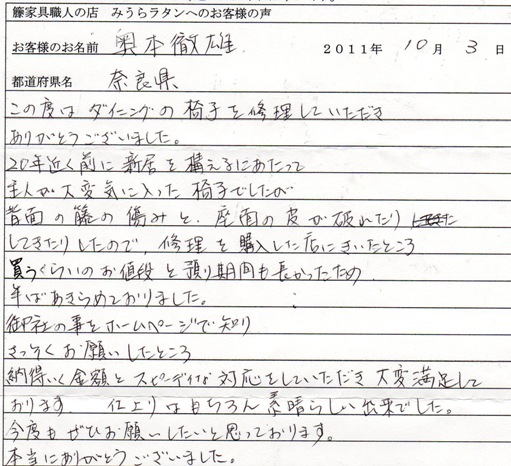 籐家具職人の店 みうらラタンへのお客様の声
お客様のお名前 奥本徹雄 2011年 10月 3日
都道府県名 奈良県
この度はダイニングの椅子を修理していただき
ありがとうございました。
20年近く前に新居を構えるにあたって
主人が大変気に入った椅子でしたが
背面の籐の傷みと、座面の皮が破れたり
してきたりしたので、修理を購入した店にきいたところ
買うくらいのお値段と預り期間も長かったため
年ばあきらめておりました。
御社の事をホームページで知り
さっそくお願いしたところ
納得いく金額とスピーディな対応をしていただき大変満足して
おります。 仕上りはもちろん素晴らしい出来でした。
今度もぜひお願いしたいと思っております。
本当にありがとうございました。